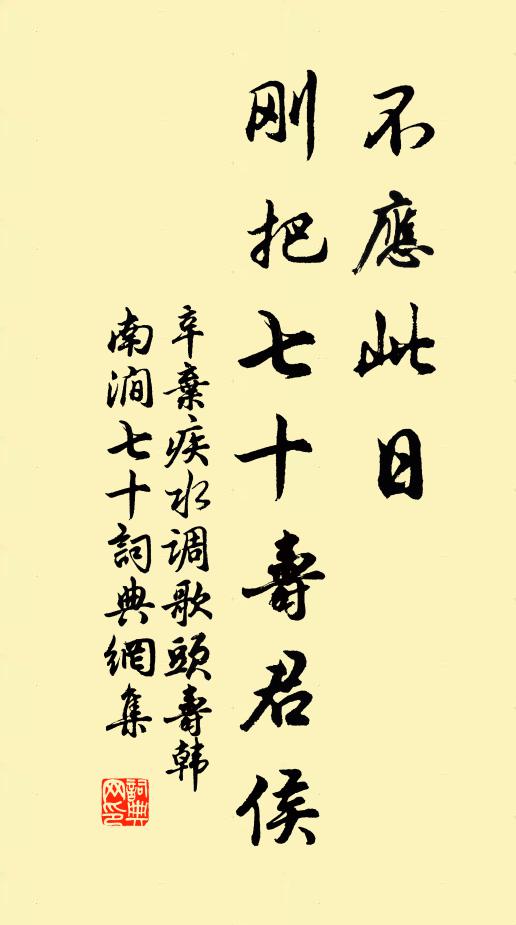 不應此日
刚把七十壽君侯
辛棄疾水调歌頭壽韩
南澗七十詞典網集
詞典
网印